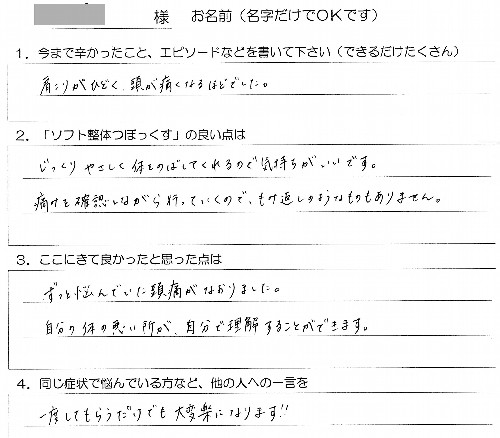 様 お名前（名字だけでOKです）
1．今まで辛かったこと、エピソードなどを書いて下さい（できるだけたくさん）
肩こりがひどく、頭が痛くなるほどでした。
2．「ソフト整体つぼっくす」の良い点は
じっくりやさしく体をのばしてくれるので気持ちがいいです。
痛みを確認しながら行っていくので、もみ返しのようなものもありません。
3．ここにきて良かったと思った点は
ずっと悩んでいた頭痛がなおりました。
自分の体の悪い所が、自分で理解することができます。
4．同じ症状で悩んでいる方など、他の人への一言を
一度してもらうだけでも大変楽になります!!